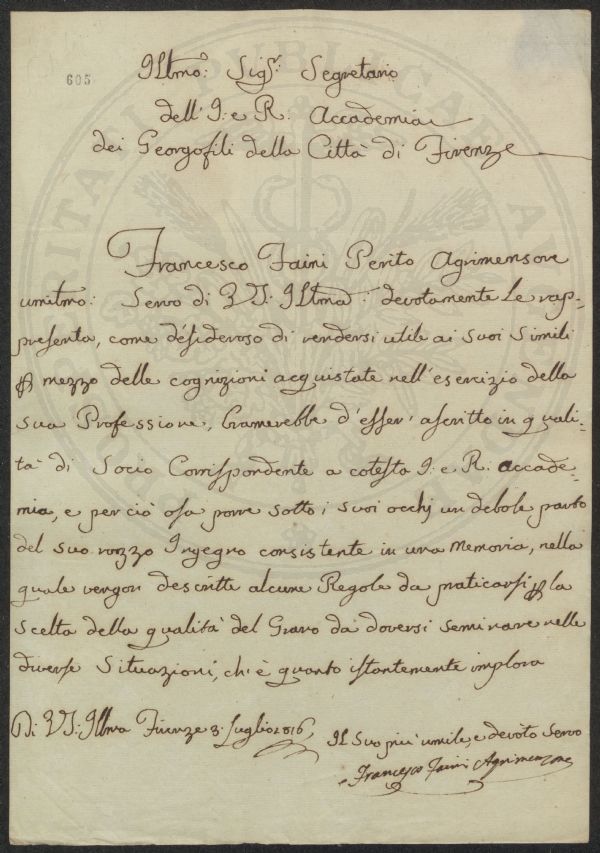 605
Illmo: Sigr: Segretario
dell'I: e R: Accademia
dei Georgofili della Città di Firenze
Francesco Faini Perito Agrimensore
umilmo: Servo di VS: Illma: devotamente le rap=
presenta, come desideroso di rendersi utile ai suoi simili
mezzo delle cognizioni acquistate nell'esercizio della
sua Professione, bramerebbe d'esser' ascritto in quali=
tà di Socio Corrispondente a cotesta I: e R: Accade=
mia, e per ciò osa porre sotto i suoi occhj un debole parto
del suo rozzo Ingegno consistente in una Memoria, nella
quale vengon descritte alcune Regole da praticarsi la
scelta della qualità del Grano da doversi seminare nelle
diverse Situazioni, ch'è quanto istantemente implora
Di VS: Illma Firenze 3: Luglio
Il Suo più umile, e devoto servo
Francesco Faini Agrimensore